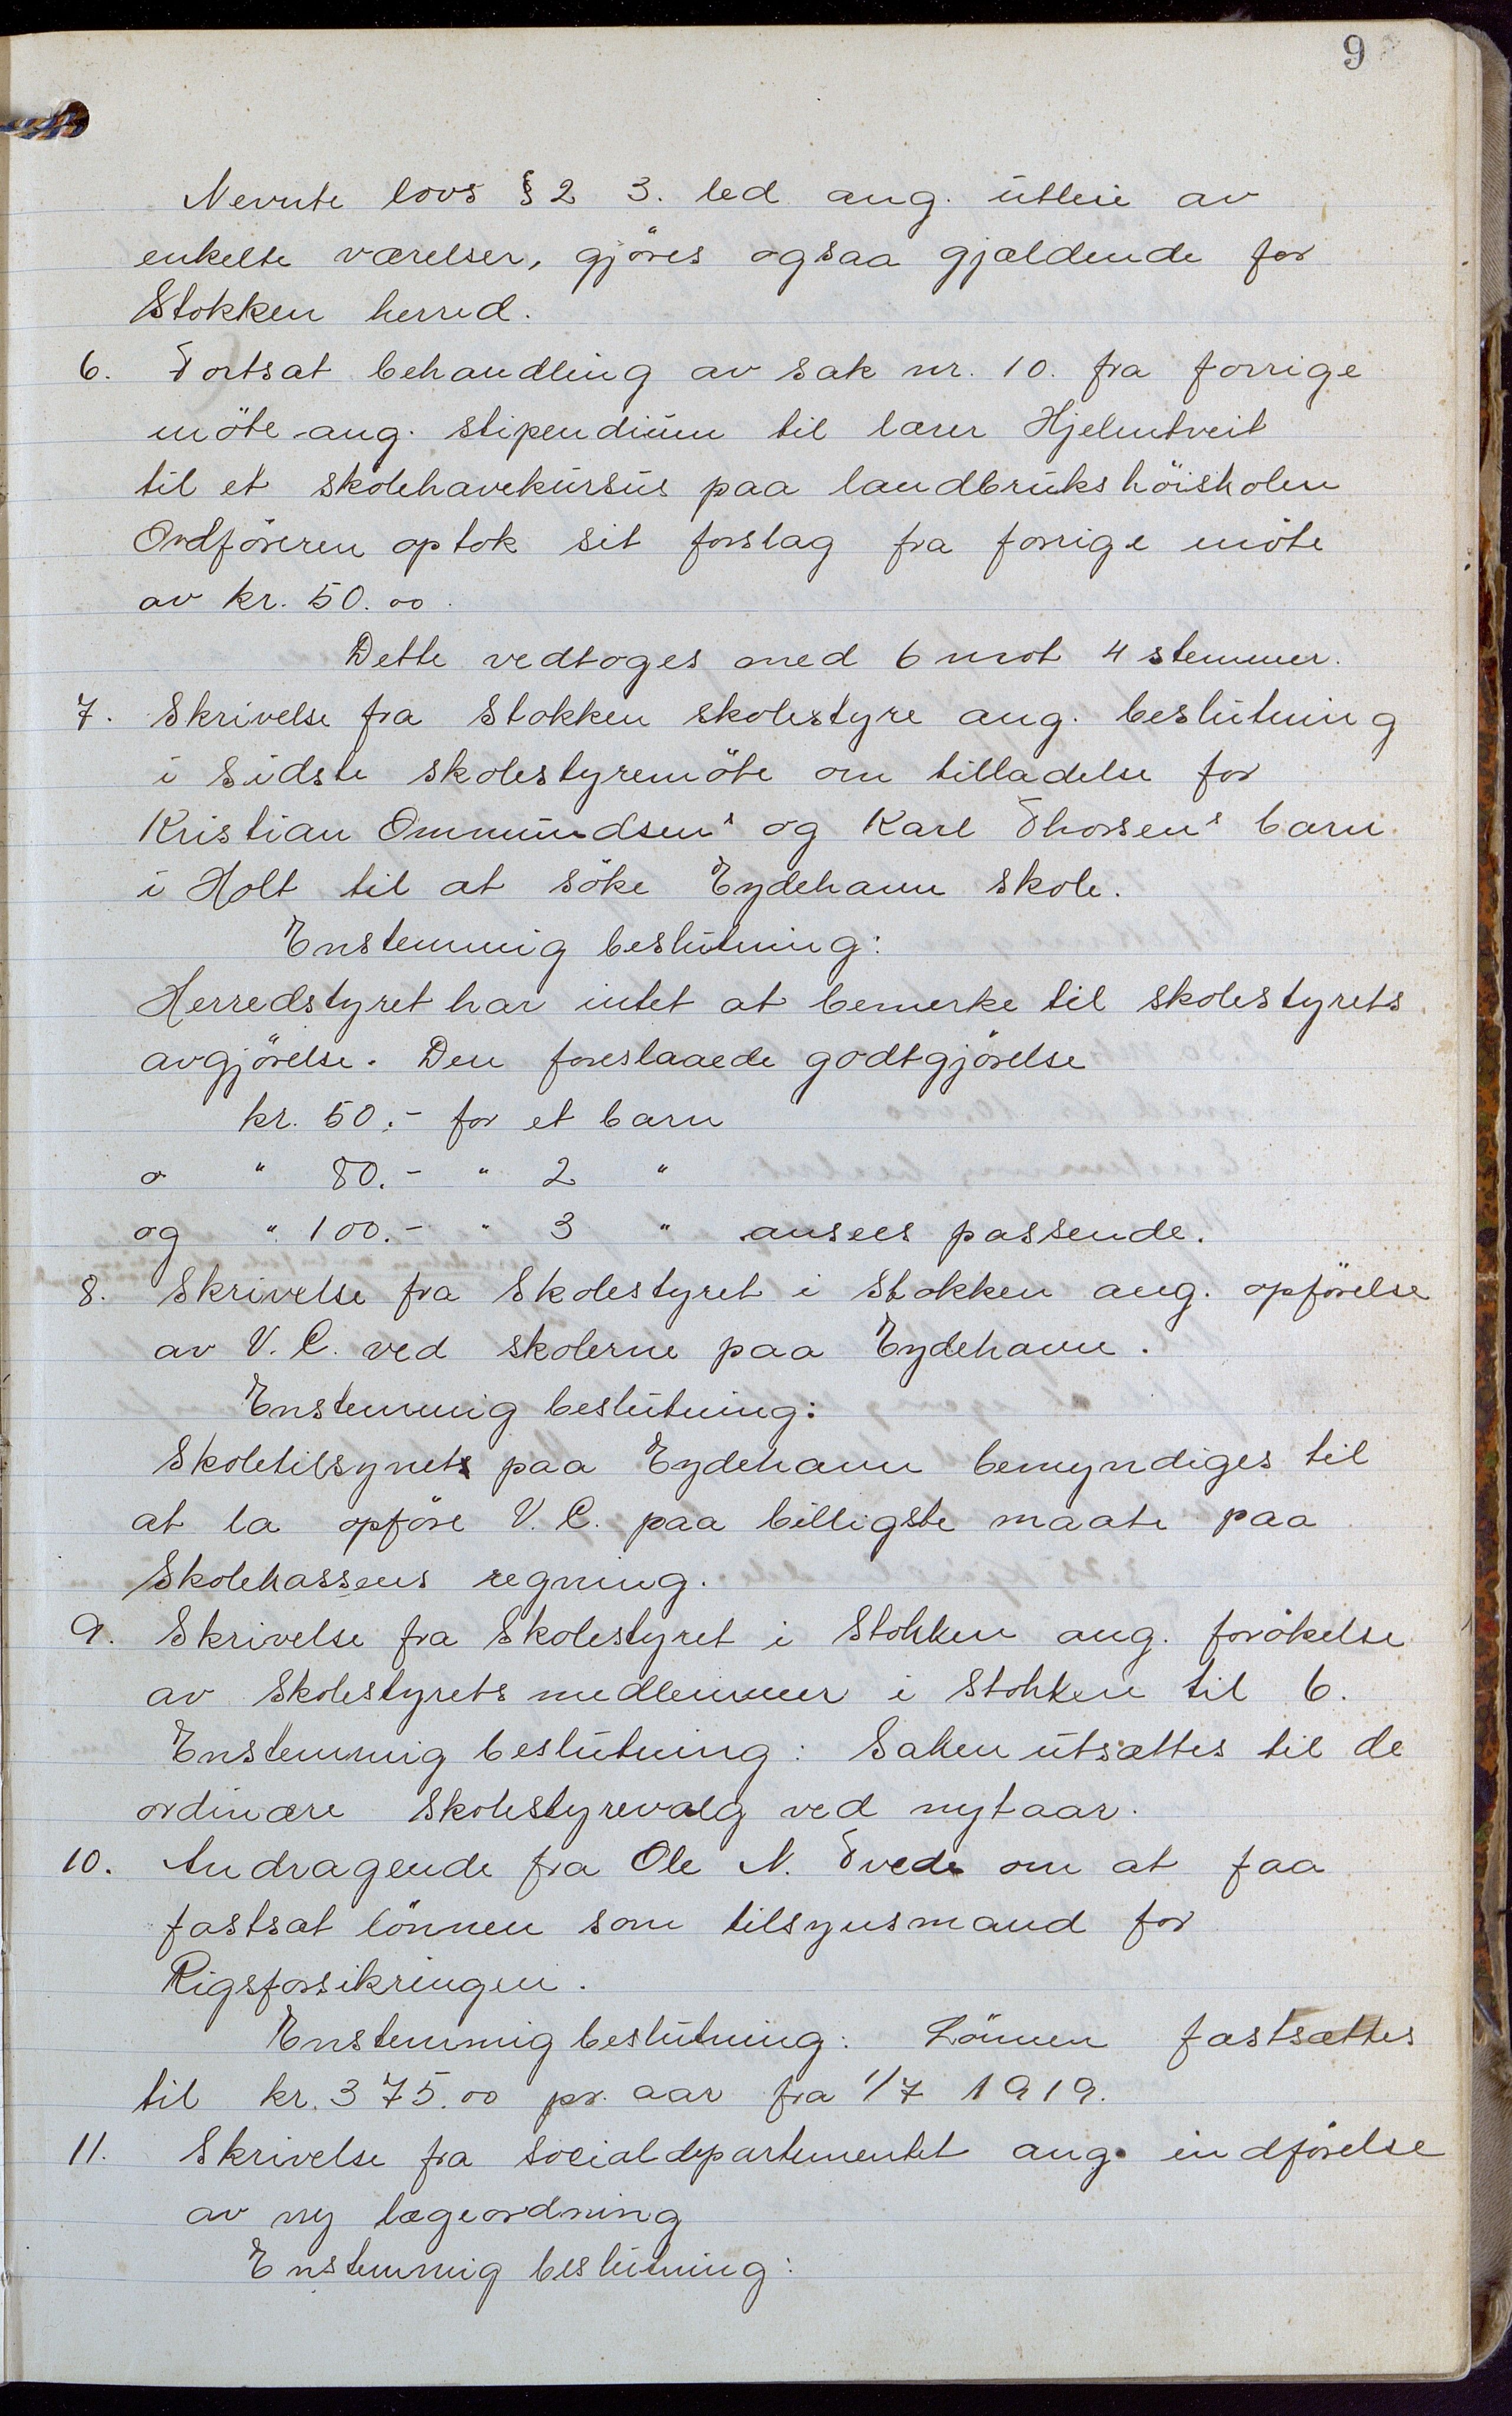 9
Nevnte lovs § 2 3. led ang. utleie av
enkelte værelser, gjöres ogsaa gjældende for
Stokken herred.
6. Fortsat behandling av sak nr. 10. fra forrige
möte ang. stipendium til lærer Hjelmtveit
til et skolehavekursus paa landbrukshöiskolen
Ordföreren optok sit forslag fra forrige möte
av kr. 50.00.
Dette vedtoges med 6 mot 4 stemmer.
7. Skrivelse fra Stokken skolestyre ang. beslutning
i sidste skolestyremöte om tilladelse for
Kristian Ommundsens og Karl Thorsens barn
i Holt til at söke Eydehavn skole.
Enstemmig beslutning:
Herredstyret har intet at bemerke til skolestyrets
avgjörelse. Den foreslaaede godtgjörelse
kr. 50.- for et barn
" 80.- " 2 "
og " 100.- " 3 " ansees passende.
8. Skrivelse fra Skolestyret i Stokken ang. opförelse
av V. C. ved skolerne paa Eydehavn.
Enstemmig beslutning:
Skoletilsynets paa Eydehavn bemyndiges til
at la opföre V. C. paa billigste maate paa
Skolekassens regning.
9. Skrivelse fra Skolestyret i Stokken ang. forökelse
av Skolestyrets medlemmer i Stokken til 6.
Enstemmig beslutning: Saken utsættes til de
ordinære Skolestyrevalg ved nytaar.
10. Andragende fra Ole N. Tvede om at faa
fastsat lönnen som tilsynsmand for
Rigsforsikringen.
Enstemmig beslutning: Lönnen fastsættes
til kr. 375.00 pr. aar fra 1/7 1919.
11. Skrivelse fra Socialdepartementet ang. indförelse
av ny lægeordning
Enstemmig beslutning: